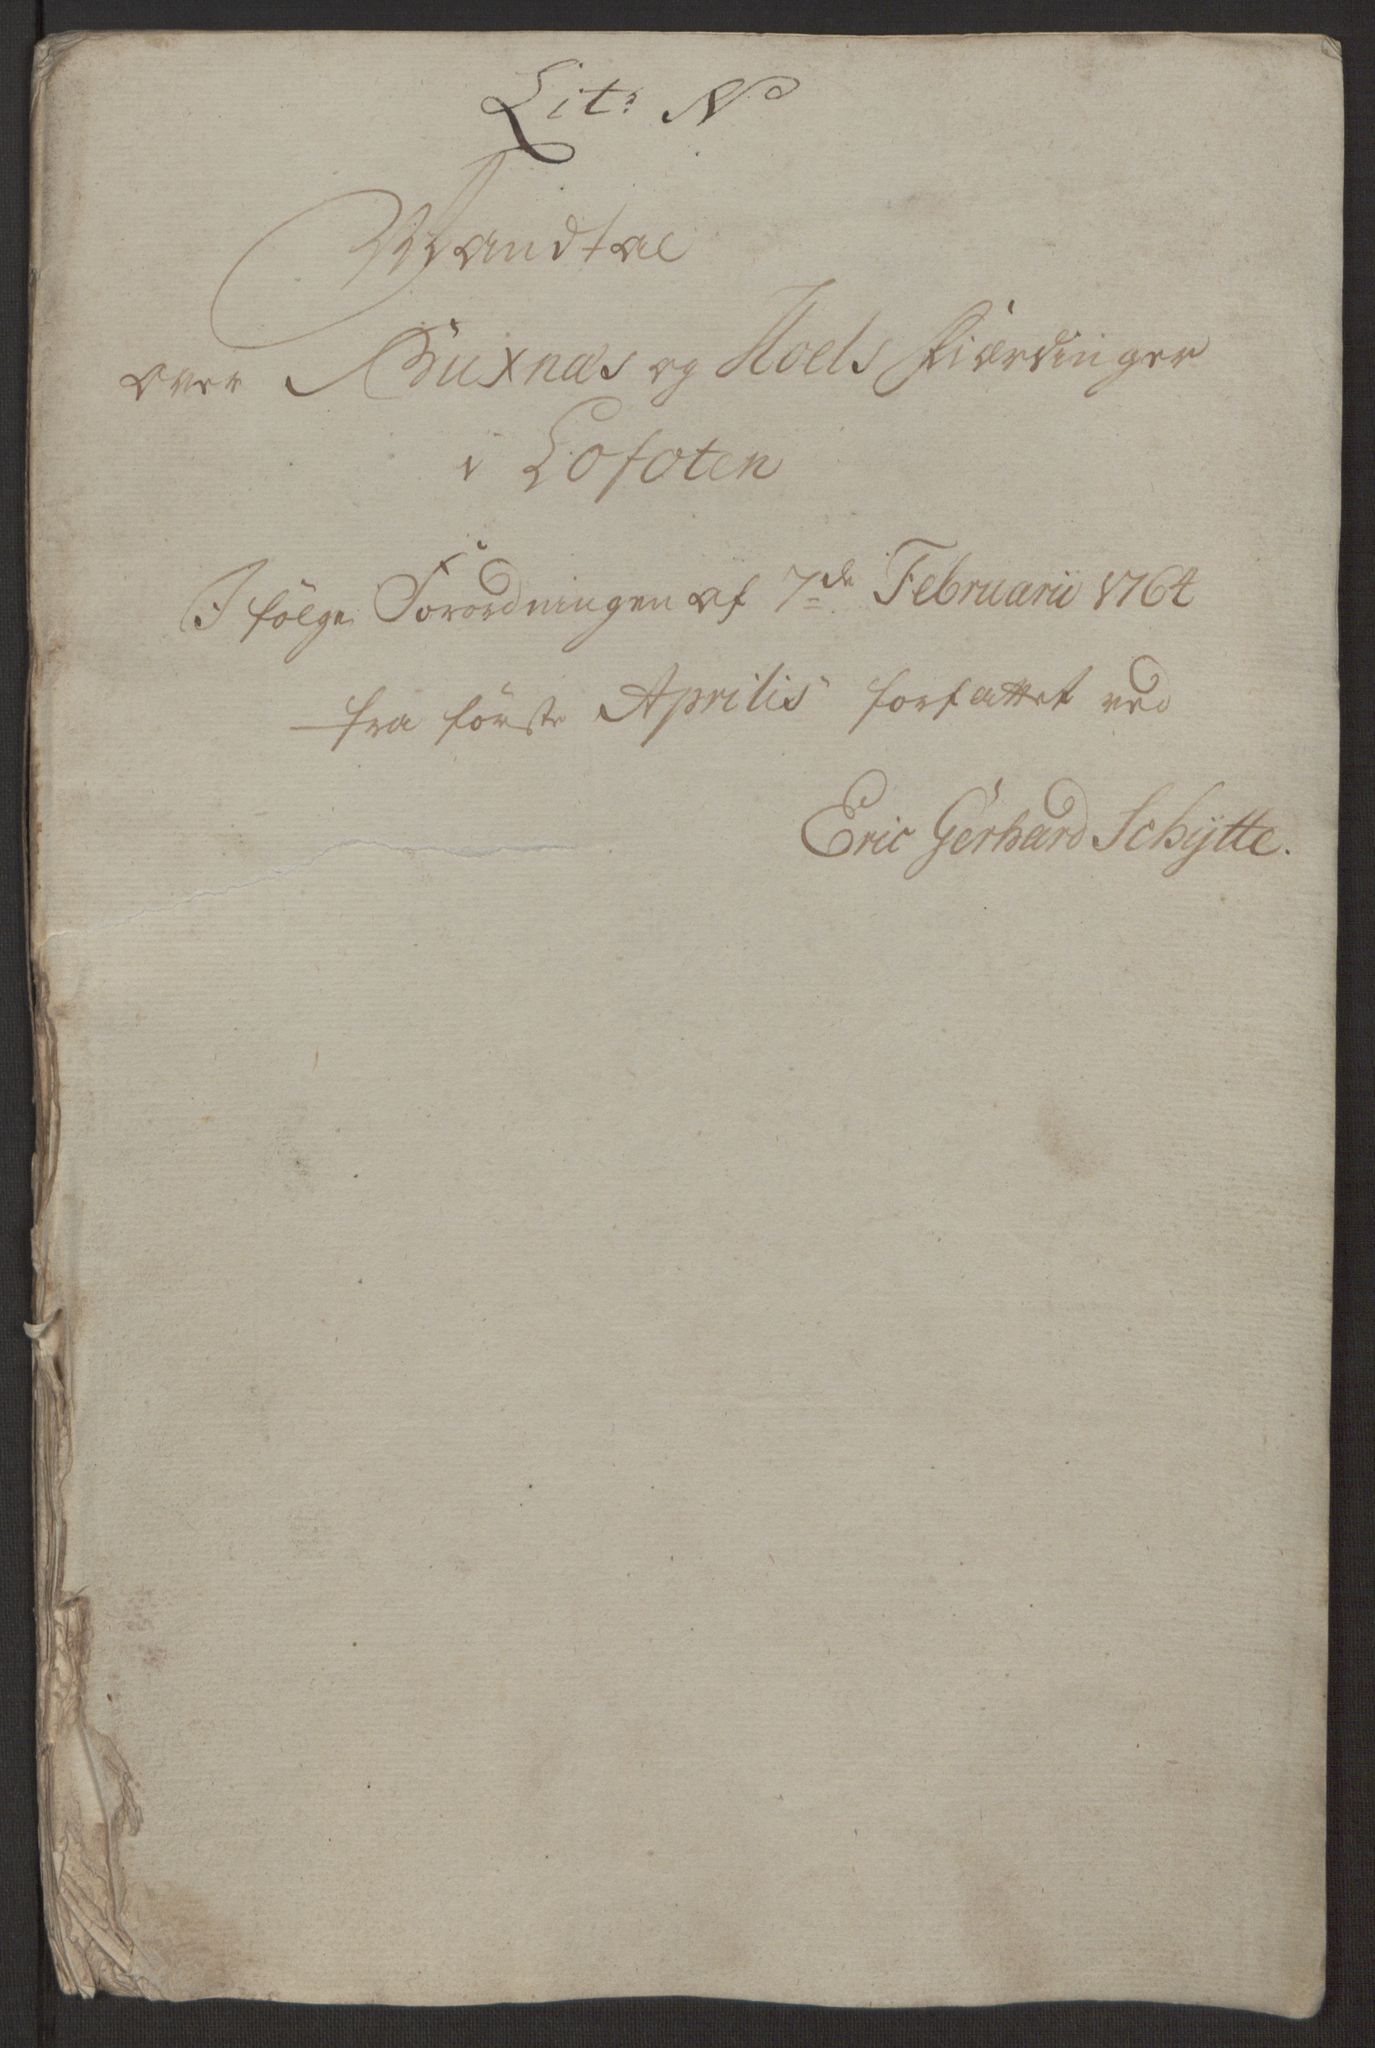 Litr N
Mandtal
over Buxnæs og Hoels fiærdinger
i Lofoten
I fölge Forordningen af 7de Februarii 1764
fra förste Aprilis forfattet ved
Eric Gerhard Schÿtte.